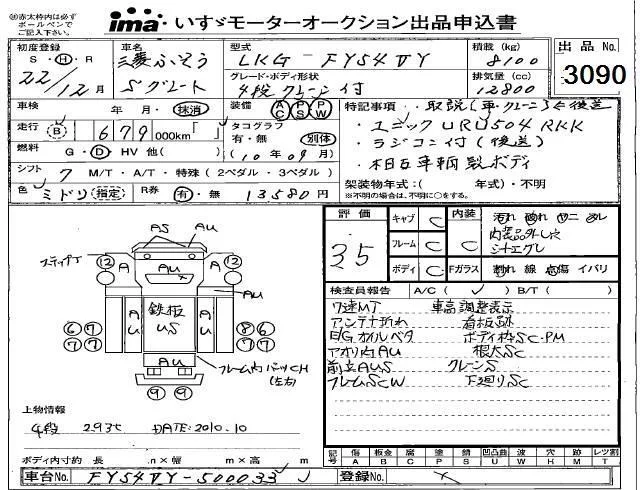 ◎太枠内は必ず
ボールペンで
ご記入下さい。
ima いすゞモーターオークション出品申込書
出品No.
3090
初度登録
S・H・R
22/12月
車名
三菱ふそう
Sグレート
型式
LKG-FY54VY
グレード・ボディ形状
4段クレーン付
積載(kg)
8100
排気量(cc)
12800
車検 年・月・抹消
装備 AC PS PW
特記事項 取説(車・クレーン)後送
・ユニックURU504RKK
・ラジコン付(後送)
ボディ
架装物年式:( 年式)・不明
※不明の場合は、不明に○をする。
走行 B 1679 000km「 」
タコグラフ
有・無 別体
(10年09月)
燃料 G・D HV 他( )
シフト 7 M/T・A/T・特殊(2ペダル・3ペダル)
色 ミドリ(指定) R券 有・無 13580円
評価
3.5
キャブ C
フレーム C
ボディ C
内装 C
Fガラス C
汚れ 破れ ヤニ カル
内装品外し穴
割れ 線 点傷 イバリ
検査員報告 A/C( ✓ ) B/T( )
7速MT 車高調整表示
アンテナ折れ 看板跡
E/Gオイルベタ ボディ枠SC・PM
アオリ内AU 根太SC
前立AUS クレーンS
フレームSCW 下廻りSC
AS AU
12 A AU A 12
AU
鉄板
US
AU AU
6 7 8 6
7 7 7 7
AU
フレーム内パーツCH
(左右)
9 9
上物情報
4段 2.93t DATE:2010.10
ボディ内寸約 長 .m×幅 .m×高 .m
記号 傷 A 板金 B 腐 C 塗 P 錆 S 凹凸曲 U 波 W 穴 H 跡 M レツ割 T
車台No. FY54VY-500033
登録No.